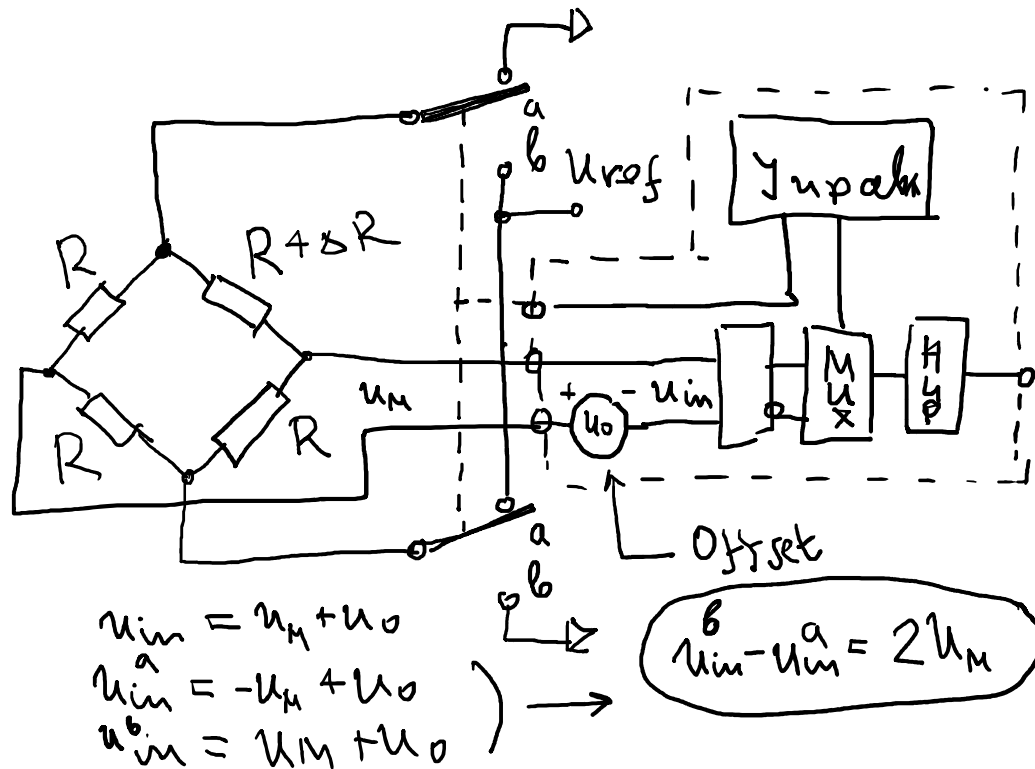 a
b
Uref
Управл
R
R + ΔR
R
R
Uм
+
-
Uin
U0
Mux
Offset
Uin = Uм + U0
Uin^a = -Uм + U0
Uin^b = Uм + U0
Uin^b - Uin^a = 2Uм
a
b